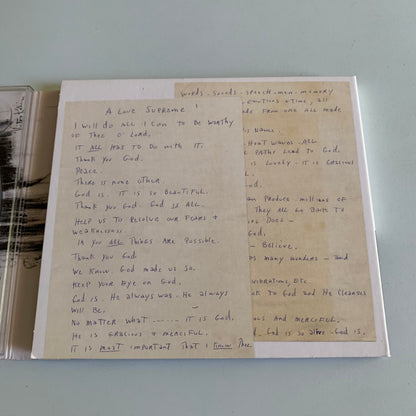 A Love Supreme!
I will do all I can to be worthy
of Thee O' Lord.
It all has to do with it.
Thank you God.
Peace.
There is none other.
God is. It is so beautiful.
Thank you God. God is All.
Help us to resolve our fears &
weaknesses.
In you all things are possible.
Thank you God
We know. God made us so.
Keep your eye on God.
God is. He always was. He always
will be.
No matter what ------ it is God.
He is gracious & merciful.
It is most important that I know Thee.
Words. Sounds. Speech. Men. Memory
emotions & time, all
made from one all made
Name
thought waves. All
paths lead to God.
is lovely - it is gracious
God.
can produce millions of
They all go back to
does -
God.
- Believe.
many wonders - and
vibrations, etc
back to God and He cleanses
and merciful.
God is so alive. God is.